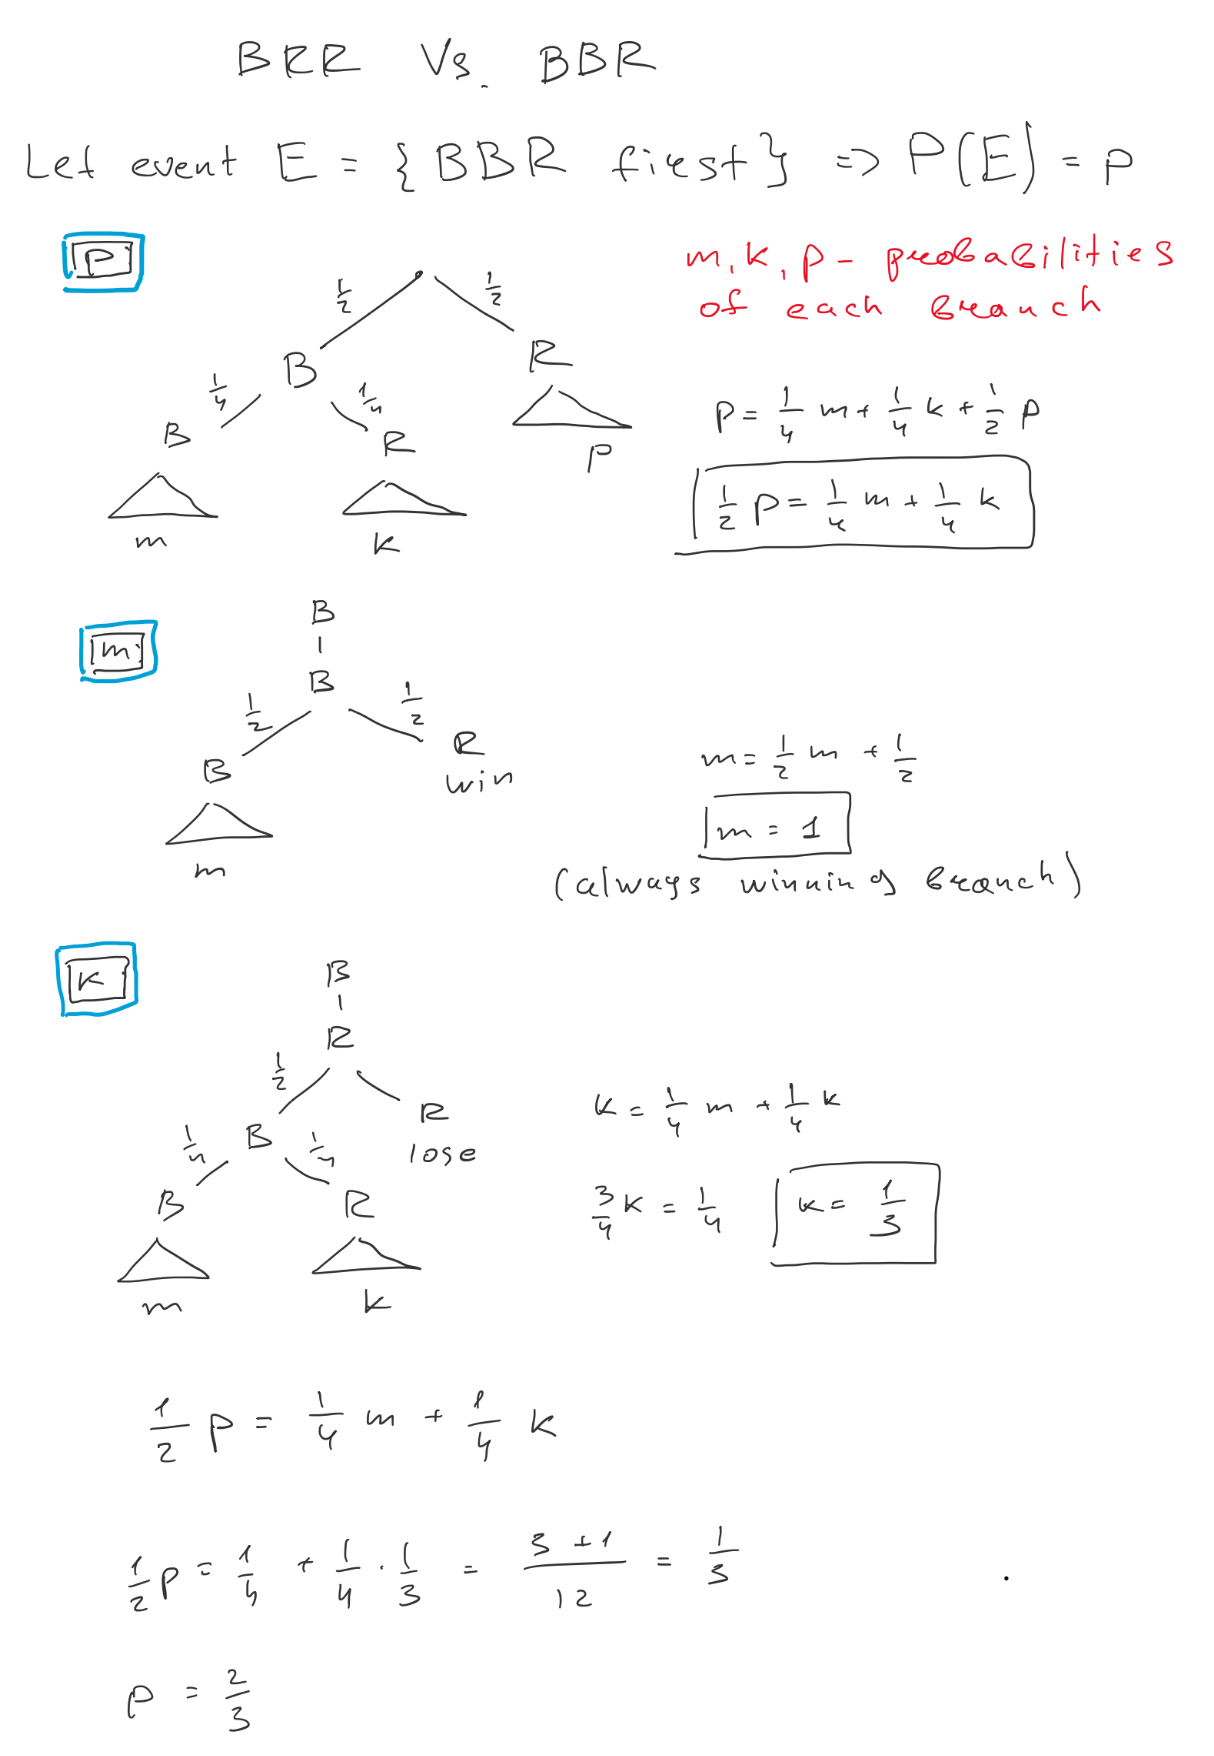 BRR Vs. BBR
Let event E = {BBR first} => P(E) = p
p
m, k, p - probabilities
of each branch
1/2 1/2
B R
1/4 1/4
B R
p
m k
p = 1/4 m + 1/4 k + 1/2 p
1/2 p = 1/4 m + 1/4 k
m
B
B
1/2 1/2
B R
win
m
m = 1/2 m + 1/2
m = 1
(always winning branch)
k
B
R
1/2
B R
lose
1/4 1/4
B R
m k
k = 1/4 m + 1/4 k
3/4 k = 1/4 k = 1/3
1/2 p = 1/4 m + 1/4 k
1/2 p = 1/4 + 1/4 · 1/3 = 3 + 1 / 12 = 1/3
p = 2/3